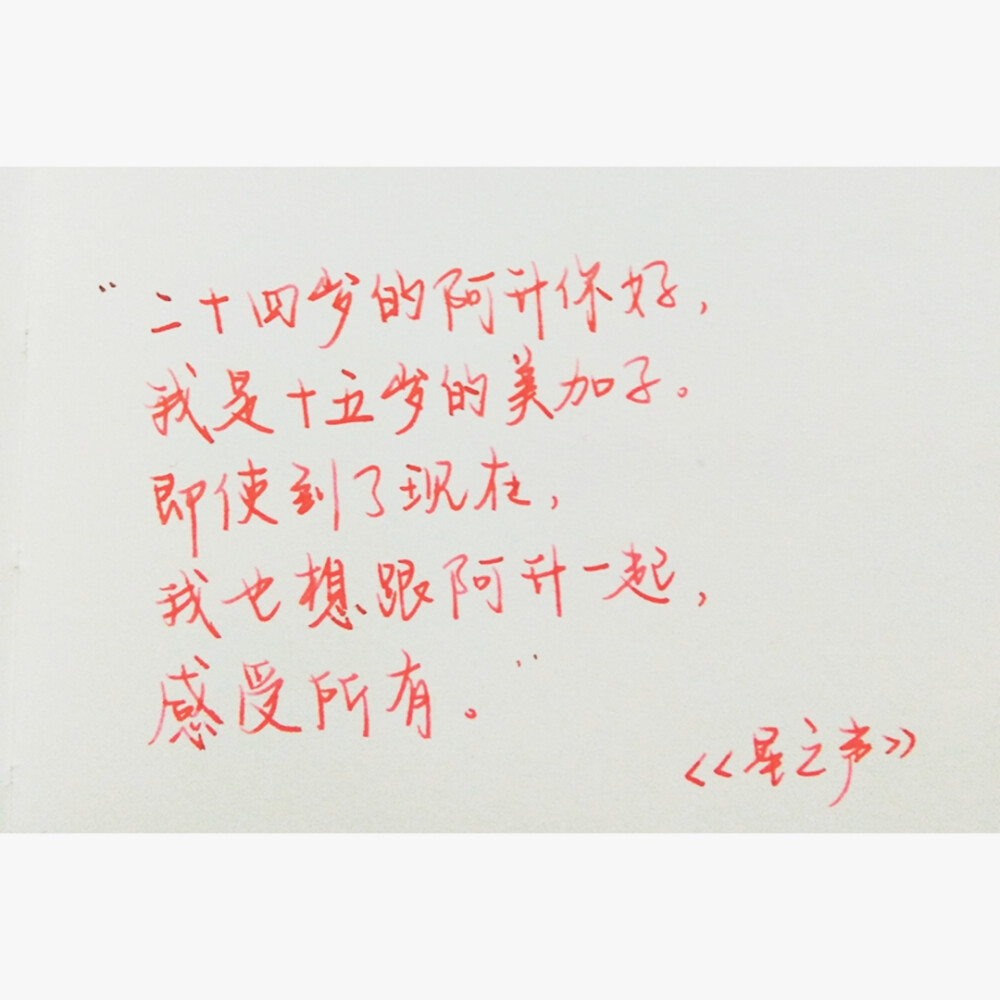 “二十四岁的阿升你好，
我是十五岁的美加子。
即使到了现在，
我也想跟阿升一起，
感受所有。”
《星之声》